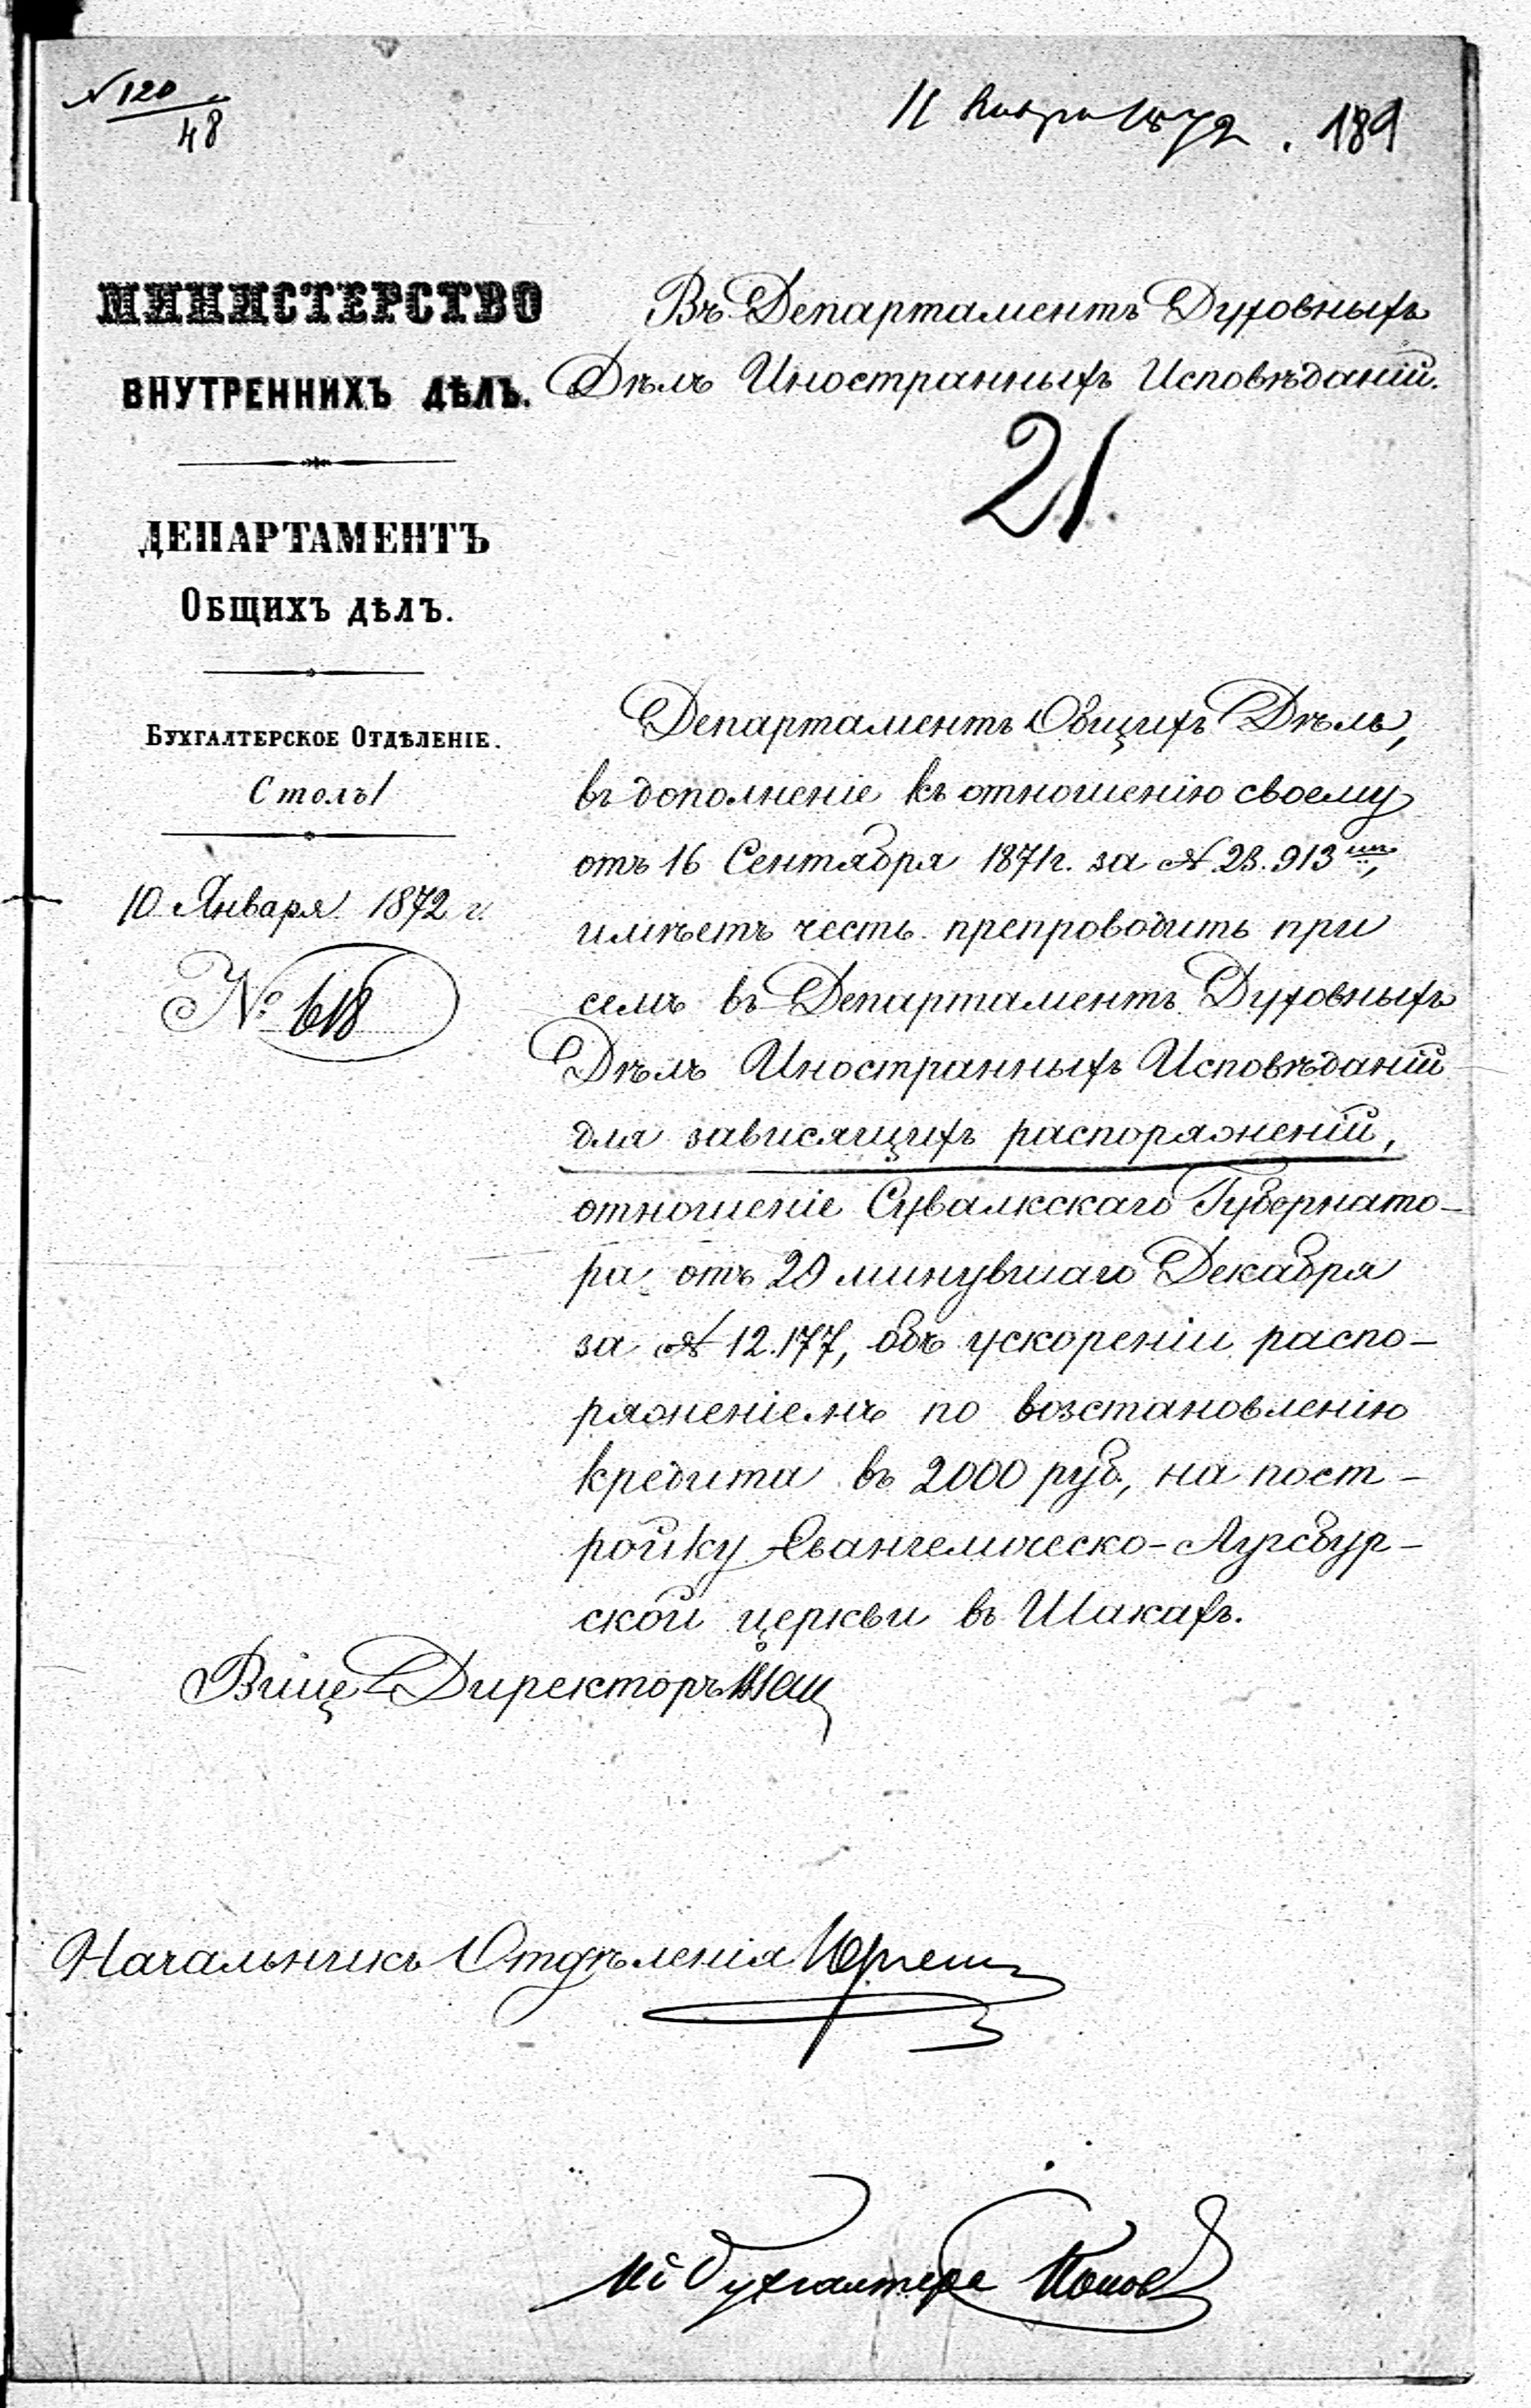 № 120
48
11 Января 1872. 189
МИНИСТЕРСТВО
ВНУТРЕННИХЪ ДѢЛЪ.
ДЕПАРТАМЕНТЪ
ОБЩИХЪ ДѢЛЪ.
БУХГАЛТЕРСКОЕ ОТДѢЛЕНІЕ.
Столъ 1
10 Января 1872 г.
№ 618
Въ Департаментъ Духовныхъ
Дѣлъ Иностранныхъ Исповѣданій.
21.
Департаментъ Общихъ Дѣлъ,
въ дополненіе къ отношенію своему
отъ 16 Сентября 1871 г. за № 23.913,
имѣетъ честь препроводить при
семъ въ Департаментъ Духовныхъ
Дѣлъ Иностранныхъ Исповѣданій
для зависящихъ распоряженій,
отношеніе Сувалкскаго Губернато-
ра отъ 29 минувшаго Декабря
за № 12.177, объ ускореніи распо-
ряженіемъ по возстановленію
кредита въ 2000 руб., на пост-
ройку Евангелическо-Аугсбур-
ской церкви въ Шакахъ.
Вице Директоръ
Начальникъ Отдѣленія
Бухгалтера Попов